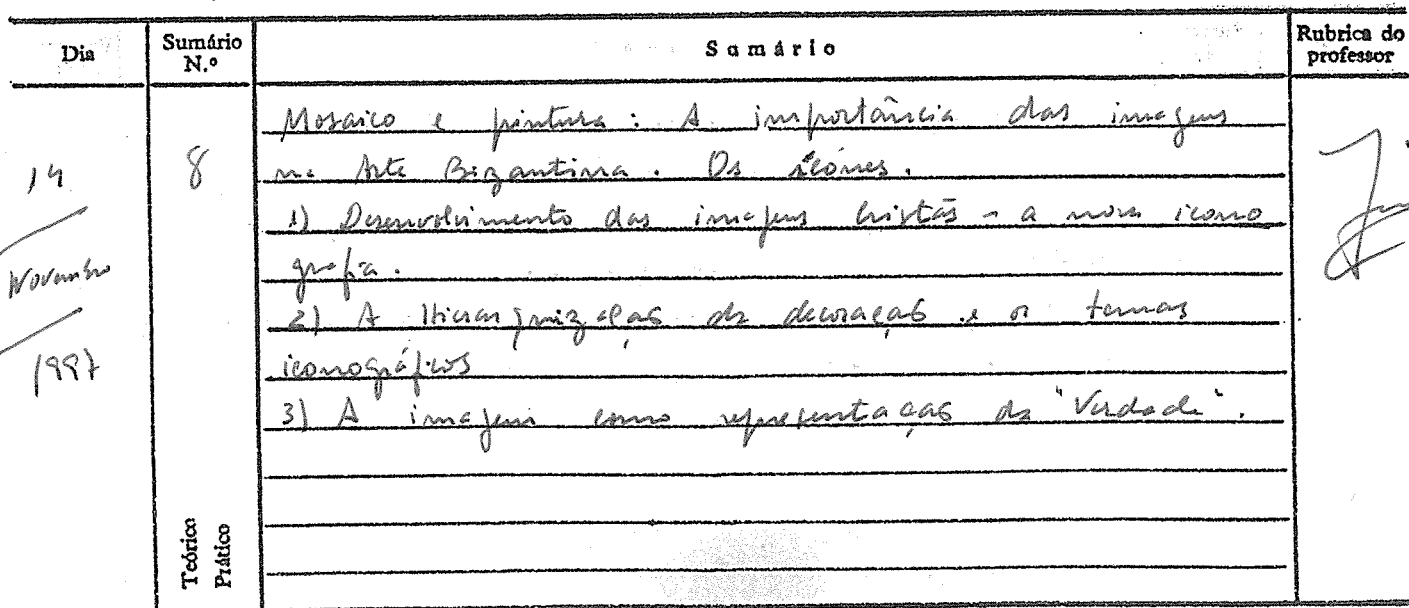 Dia
Sumário N.º
Sumário
Rubrica do professor
14
Novembro
1997
8
Mosaico e pintura : A importância das imagens
na Arte Bizantina . Os ícones .
1) Desenvolvimento das imagens cristãs - a nova icono
grafia .
2) A Hierarquização da decoração e os temas
iconográficos
3) A imagem como representação da "Verdade" .
Teórico
Prático